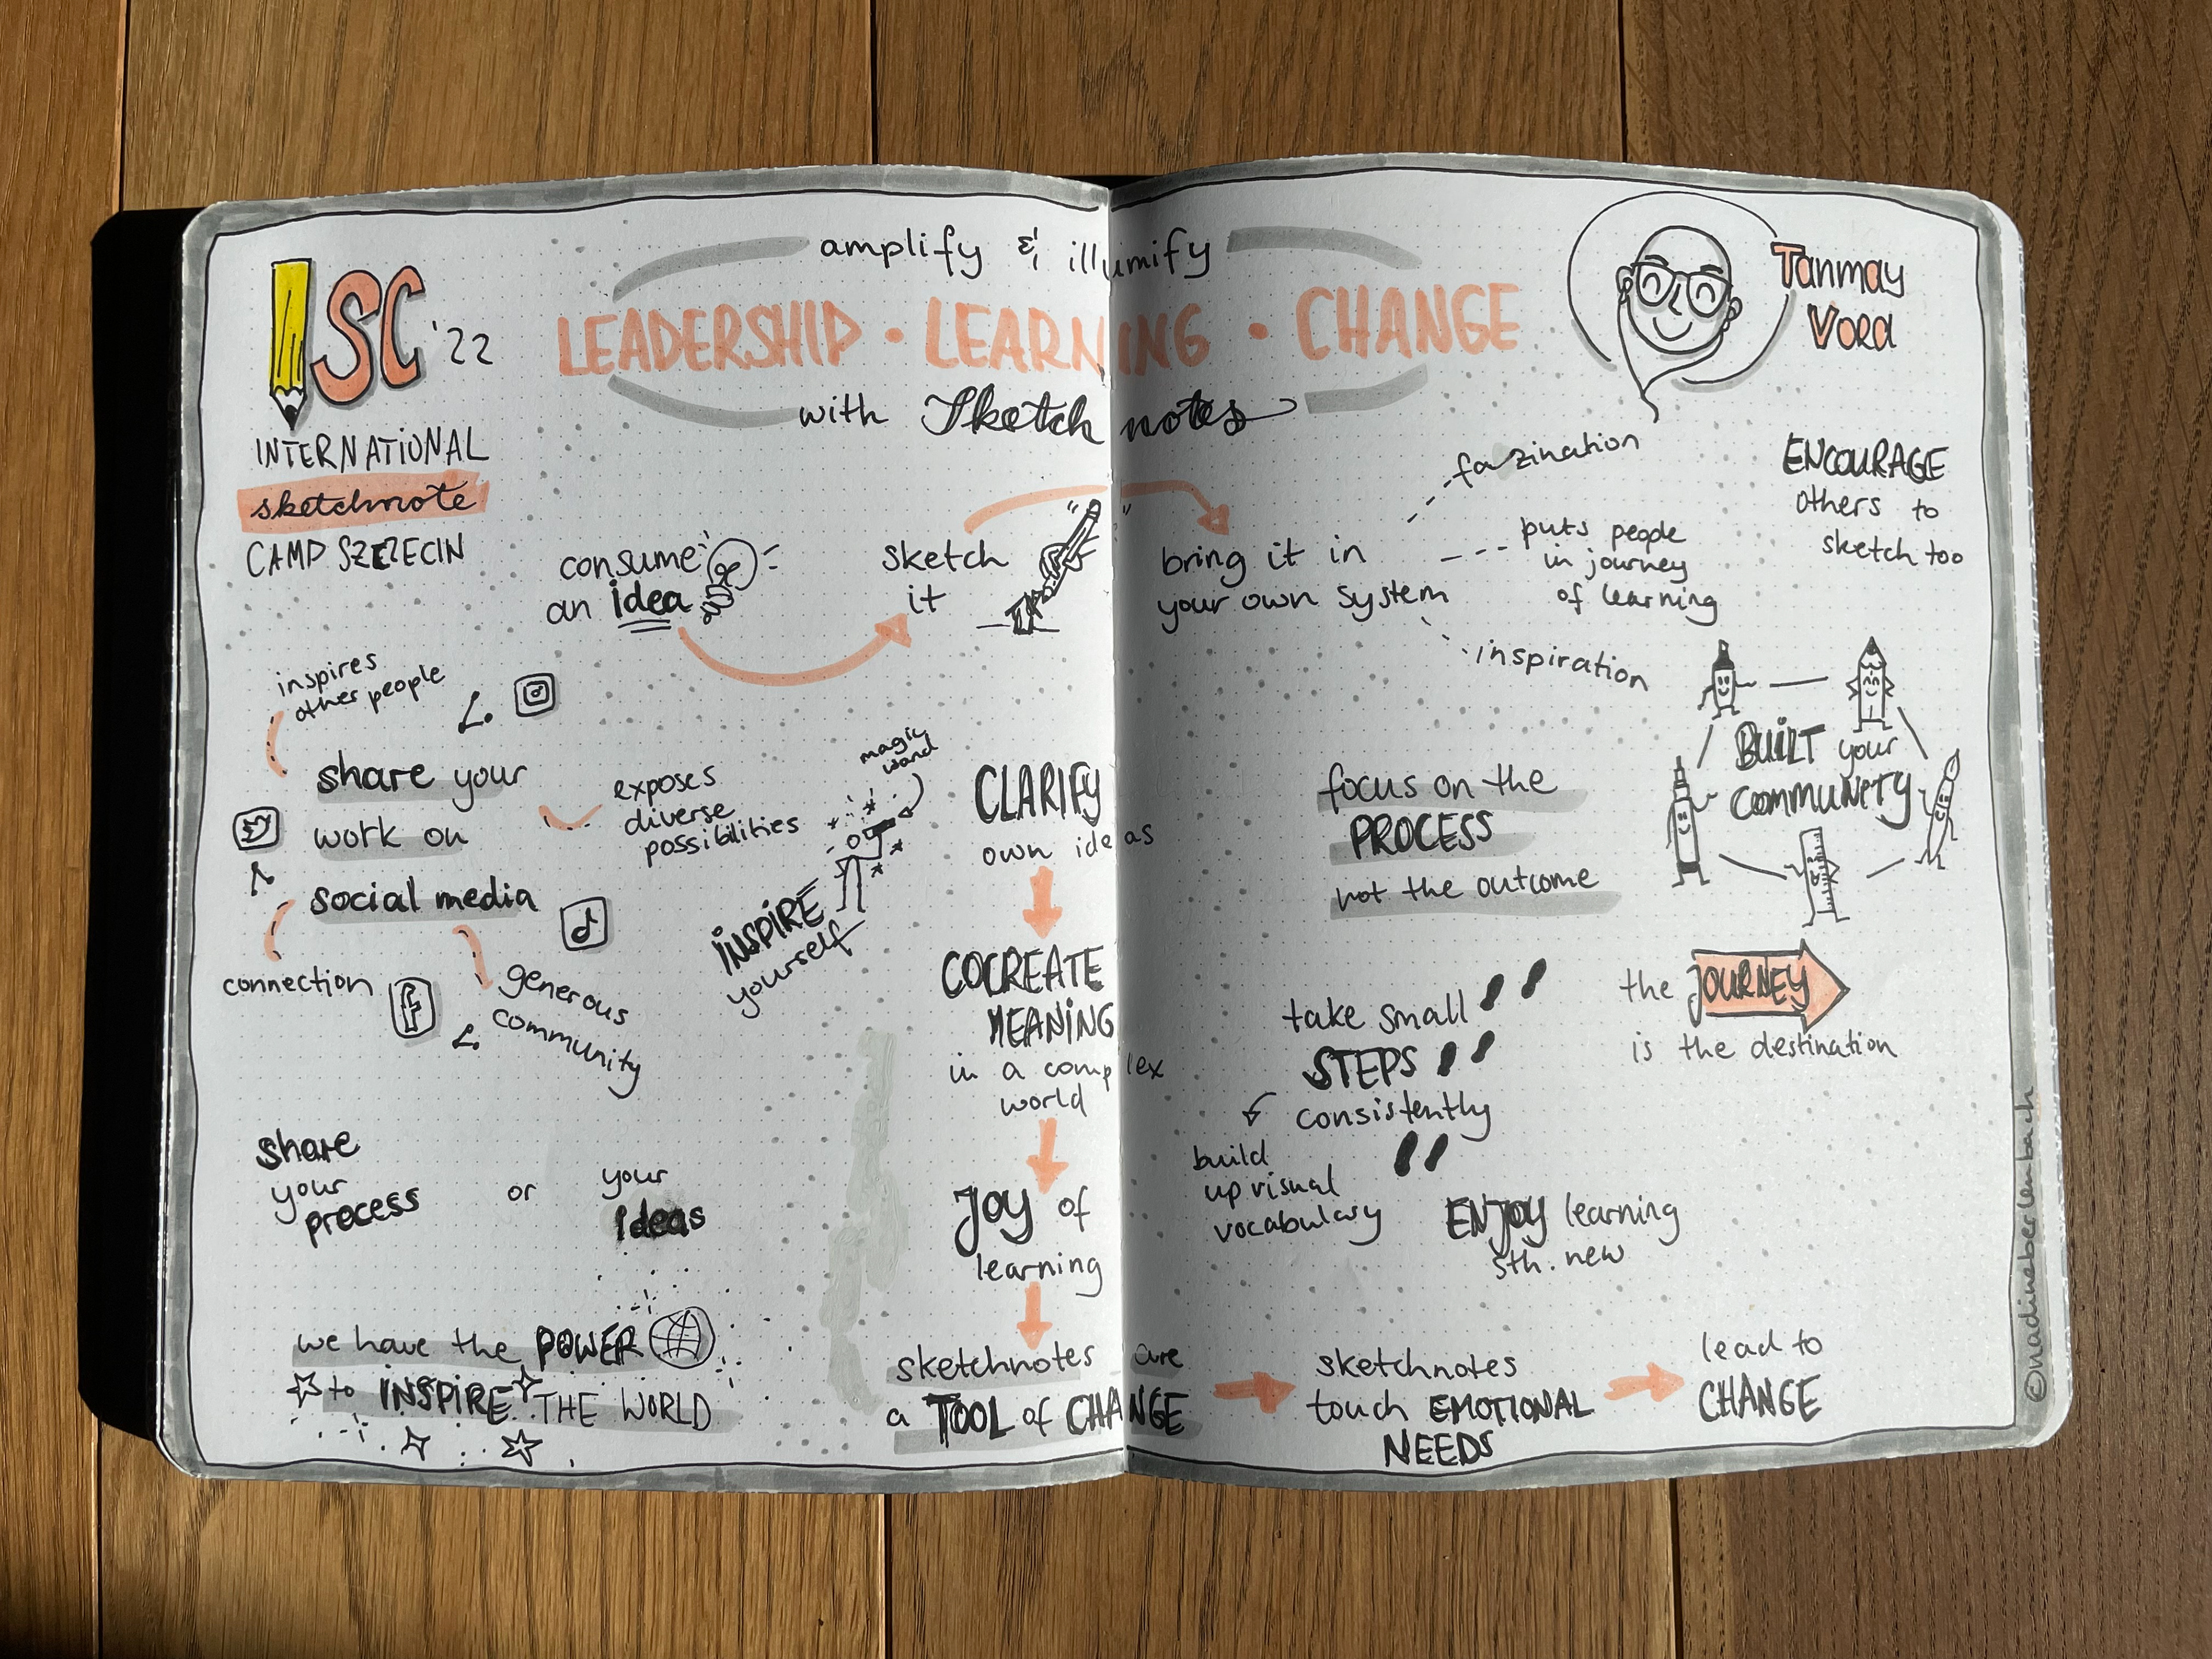 ISC '22
INTERNATIONAL
sketchnote
CAMP SZEZECIN
amplify & illumify
LEADERSHIP • LEARNING • CHANGE
with Sketchnotes
Tanmay
Vora
consume
an idea
sketch
it
bring it in
your own system
faszination
puts people
in journey
of learning
inspiration
ENCOURAGE
others to
sketch too
inspires
other people
share your
work on
social media
exposes
diverse
possibilities
connection
generous
community
magic
wand
INSPIRE
yourself
CLARIFY
own ideas
COCREATE
MEANING
in a complex
world
JOY of
learning
sketchnotes are
a TOOL of CHANGE
share
your
process
or
your
ideas
we have the POWER
to INSPIRE THE WORLD
focus on the
PROCESS
not the outcome
BUILT your
COMMUNITY
take small
STEPS
consistently
build
up visual
vocabulary
the JOURNEY
is the destination
ENJOY learning
sth. new
sketchnotes
touch EMOTIONAL
NEEDS
lead to
CHANGE
©nadineberlenbach